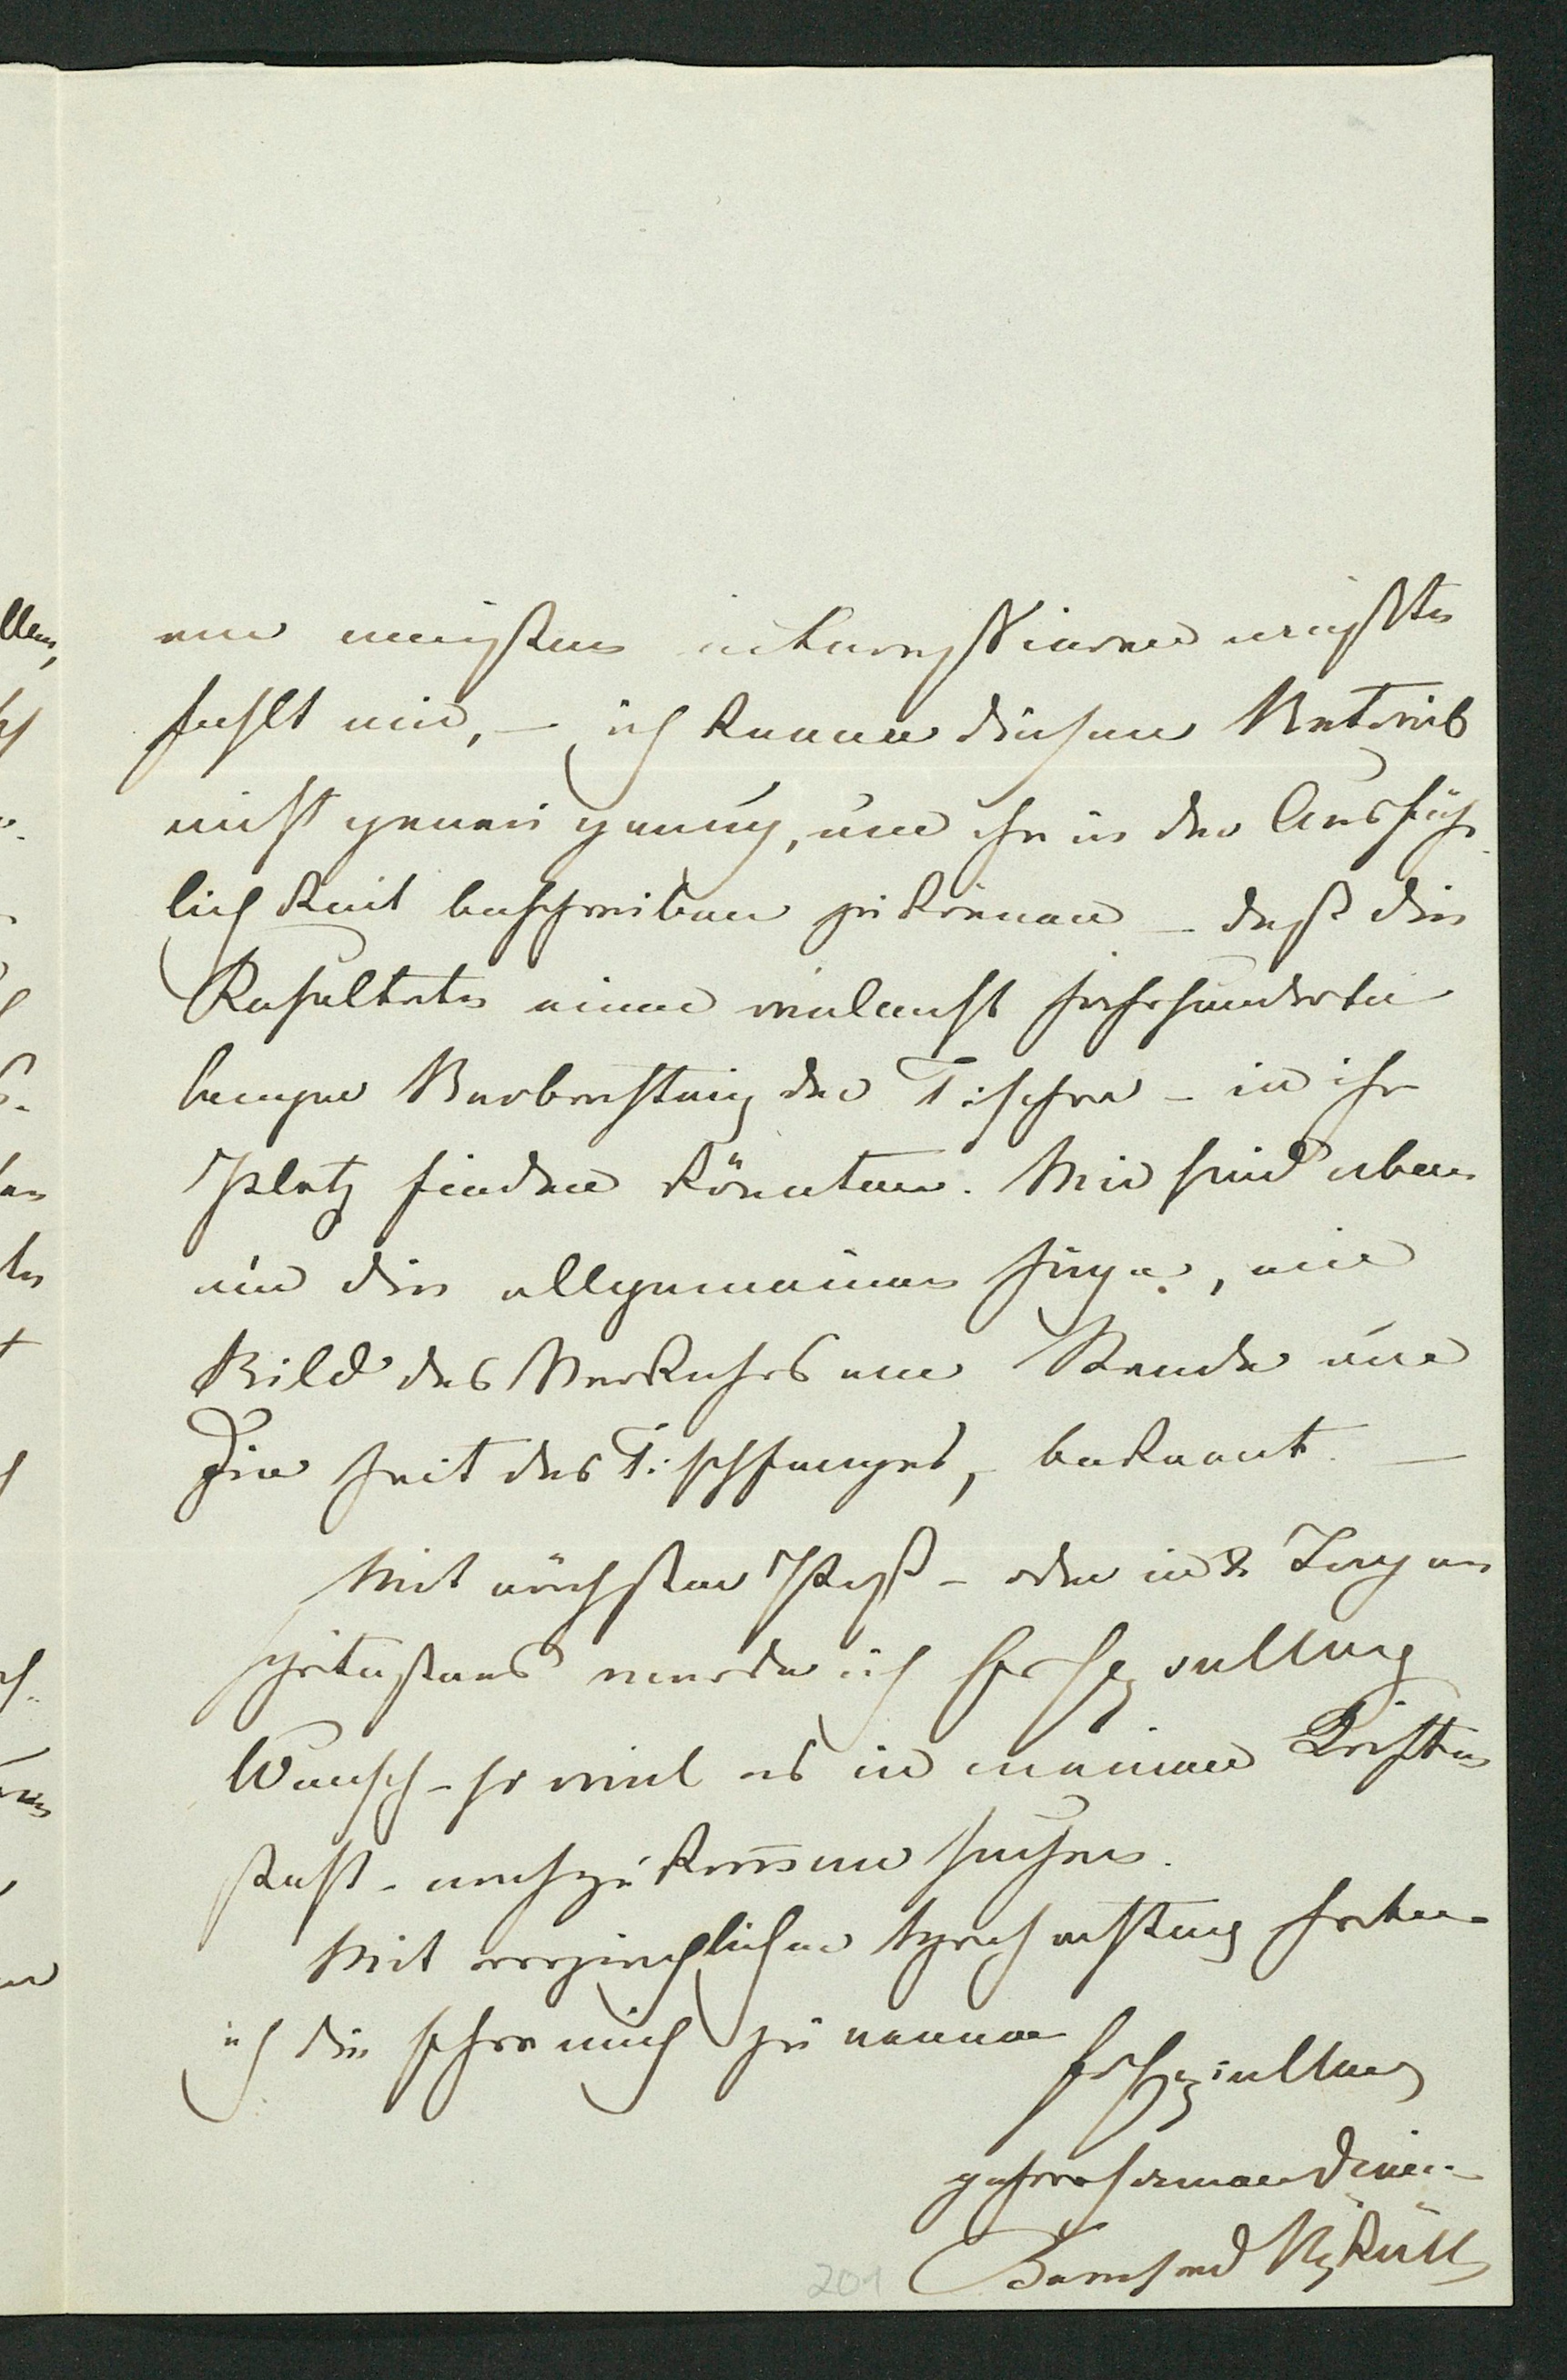 am meisten interessieren möchte
fehlt mir, – ich kenne diesen Betrieb
nicht genau genug, um ihn in der Ausführ-
lichkeit beschreiben zu können – daß die
Resultate einer vielleicht jahrhunderte
langen Beobachtung der Fischer – in ihr
Platz finden könnten. Mir sind eben
nur die allgemeinen Züge, ein
Bild des Verkehrs am Rande um
die Zeit des Fischfanges, bekannt. –
Mit nächster Post – oder in 8 Tagen
spätestens werde ich
Wunsch – so viel es in meinen Kräften
steht – nachzukommen suchen.
Mit vorzüglicher Hochachtung habe
ich die Ehre mich zu nennen
gehorsamen Diener